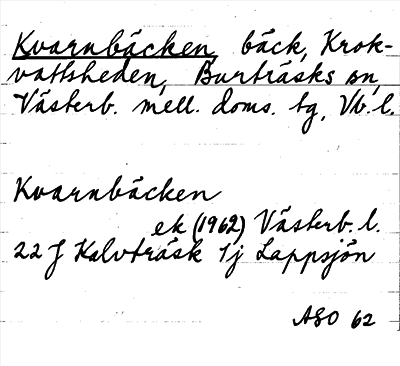 Kvarnbäcken, bäck, Krok-
vattsheden, Burträsks sn,
Västerb. mell. doms. tg, Vb. l.
Kvarnbäcken
ek (1962) Västerb. l.
22 J Kalvträsk 1j Lappsjön
ASO 62